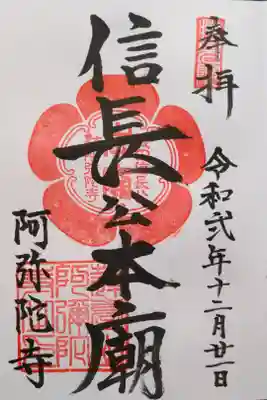 奉拝
令和弐年十二月廿一日
信長公本廟
阿弥陀寺